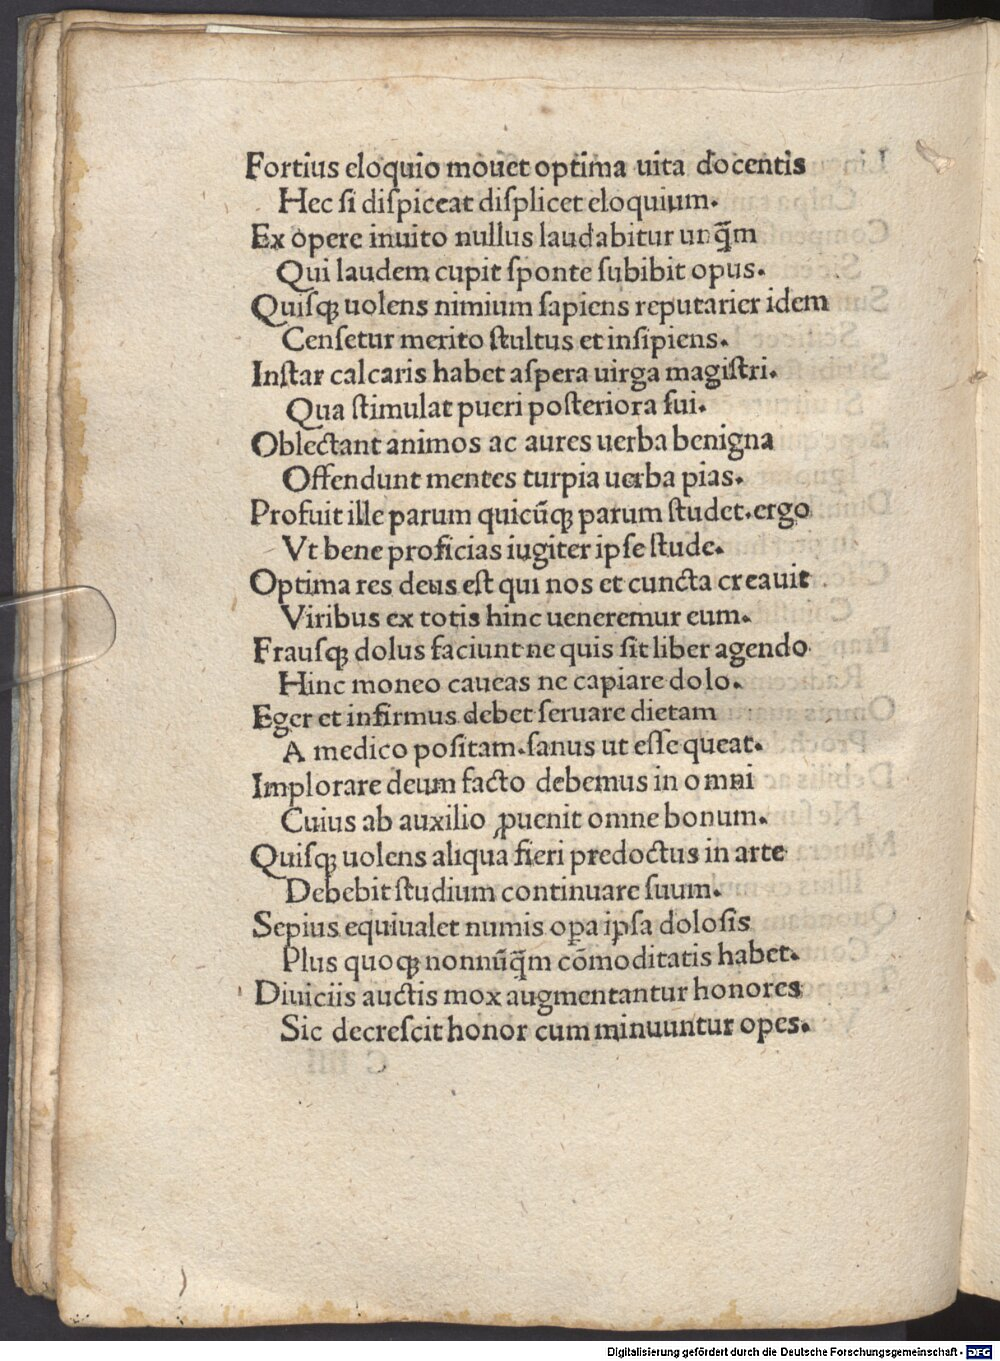 Fortius eloquio mouet optima uita docentis
Hec ſi diſpiceat diſplicet eloquium.
Ex opere inuito nullus laudabitur unq̃m
Qui laudem cupit ſponte ſubibit opus.
Quiſqꝫ uolens nimium ſapiens reputarier idem
Cenſetur merito ſtultus et inſipiens.
Inſtar calcaris habet aſpera uirga magiſtri.
Qua ſtimulat pueri poſteriora ſui.
Oblectant animos ac aures uerba benigna
Offendunt mentes turpia uerba pias.
Profuit ille parum quicũqꝫ parum ſtudet.ergo
Vt bene proficias iugiter ipſe ſtude.
Optima res deus eſt qui nos et cuncta creauit
Viribus ex totis hinc ueneremur eum.
Frauſqꝫ dolus faciunt ne quis ſit liber agendo
Hinc moneo caueas ne capiare dolo.
Eger et infirmus debet ſeruare dietam
A medico poſitam.ſanus ut eſſe queat.
Implorare deum facto debemus in omni
Cuius ab auxilio ꝓuenit omne bonum.
Quiſqꝫ uolens aliqua fieri predoctus in arte
Debebit ſtudium continuare ſuum.
Sepius equiualet numis oꝑa ipſa doloſis
Plus quoqꝫ nonnũq̃m cõmoditatis habet.
Diuiciis auctis mox augmentantur honores
Sic decreſcit honor cum minuuntur opes.
Digitalisierung gefördert durch die Deutsche Forschungsgemeinschaft - DFG